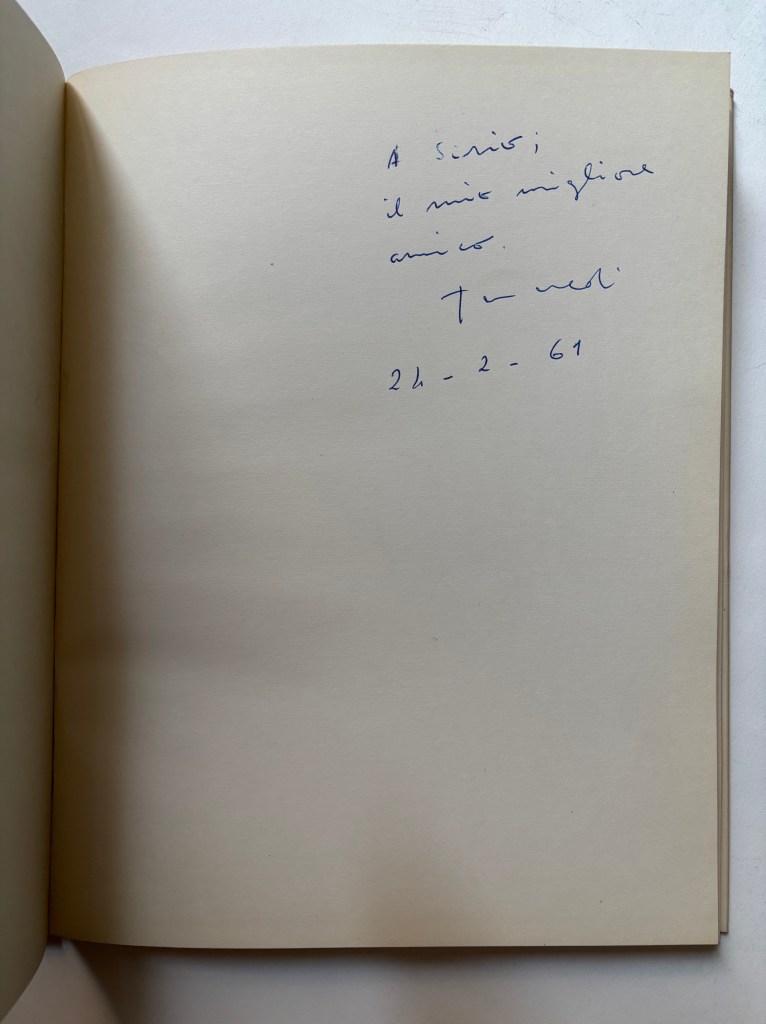 A Sirio;
il mio migliore
amico.
24 - 2 - 61